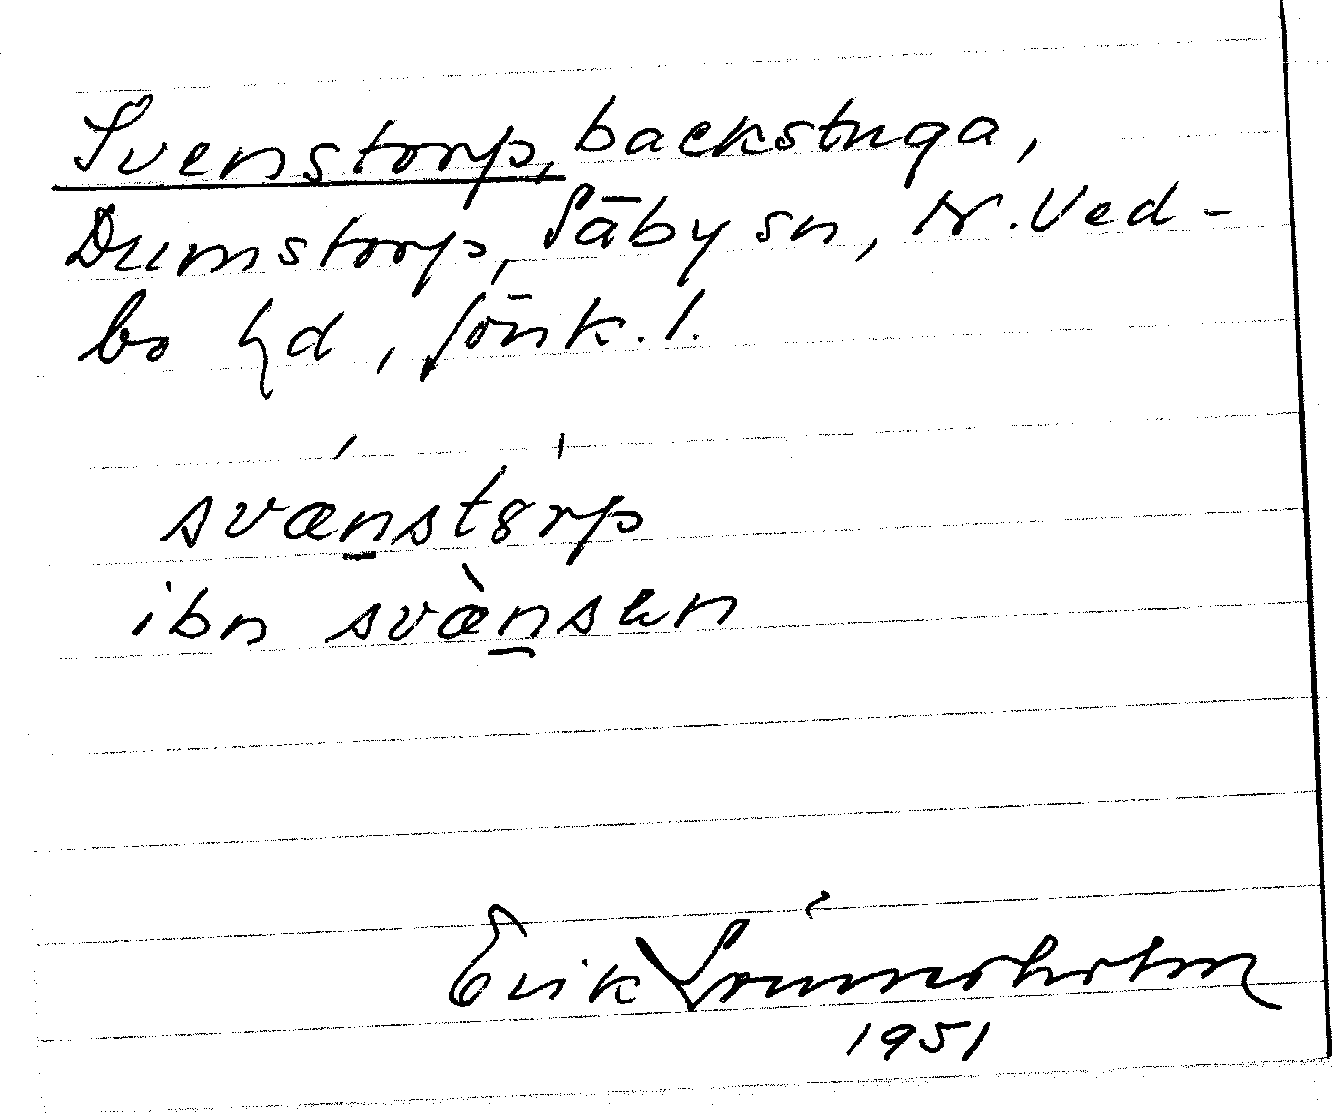 Svenstorp, backstuga,
Dumstorp, Säby sn, N. Ved-
bo hd, Jönk. l.
svǽn̲stȣrp
ibn svæ̀n̲sen
Erik Lönnerholm
1951